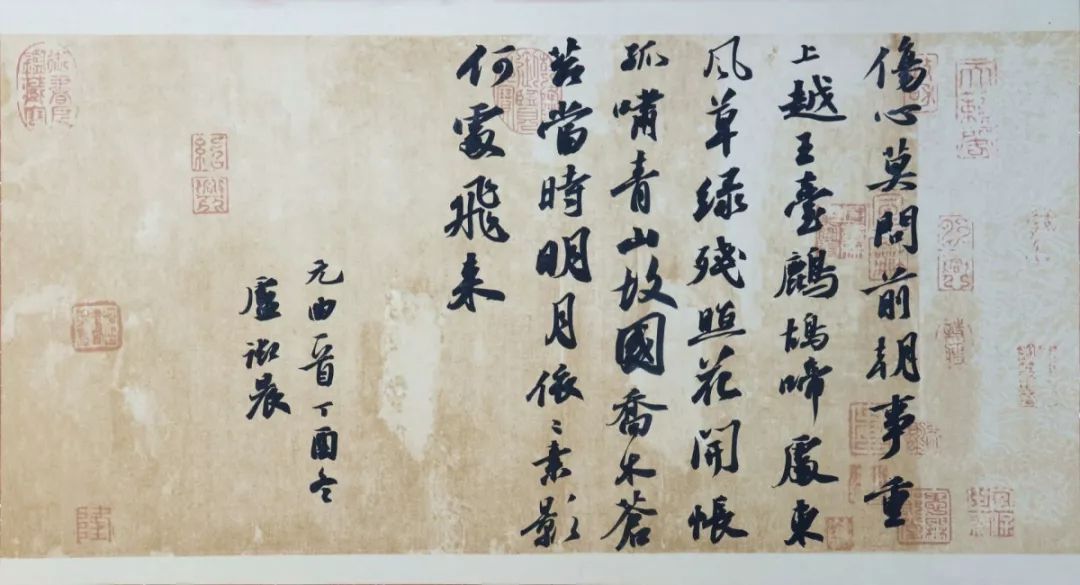 傷心莫問前朝事重
上越王臺鷓鴣啼處東
風草綠殘照花開悵
孤嘯青山故國喬木蒼
苔當時明月依〻素影
何處飛来
元曲一首丁酉冬
盧晨
紹興